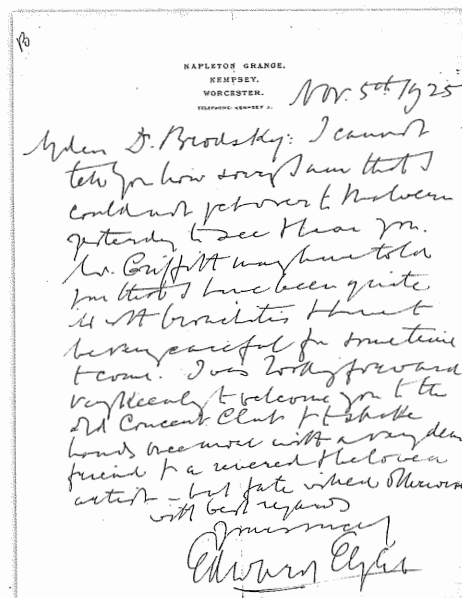 NAPLETON GRANGE,
KEMPSEY,
WORCESTER.
TELEPHONE: KEMPSEY 2.
Nov. 5th 1925
My dear Dr. Brodsky: I cannot
tell you how sorry I am that I
could not get over to Malvern
yesterday to see & hear you.
Mr. Griffith may have told
you that I have been quite
ill with bronchitis & must
be very careful for some time
to come. I was looking forward
very keenly to welcome you to the
old Concert Club & to shake
hands once more with a very dear
friend & a revered & beloved
artist – but fate wished otherwise
with best regards
Yours sincerely
Edward Elgar